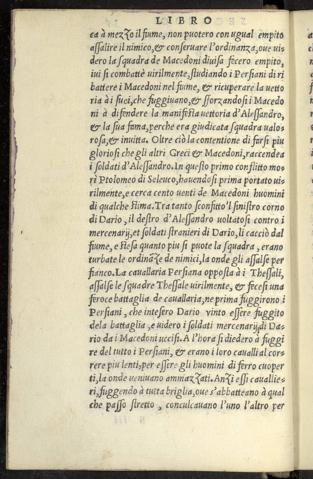 LIBRO
ea à mezzo il fiume, non puotero con ugual empito
assalire il nimico, & conseruare l'ordinanza, oue ui-
dero la squadra de Macedoni diuisa fecero empito,
iui si combattè uirilmente, studiando i Persiani di ri
battere i Macedoni nel fiume, & ricuperare la uetto
ria à i suoi, che fuggiuano, & sforzandosi i Macedo
ni à difendere la manifesta uettoria d'Alessandro,
& la sua fama, perche era giudicata squadra ualo-
rosa, & inuitta. Oltre ciò la contentione di farsi piu
gloriosi che gli altri Greci & Macedoni, raccendea
i soldati d'Alessandro. In questo primo conflitto mo-
ri Ptolomeo di Seleuco, hauendosi prima portato ui-
rilmente, e cerca cento uenti de Macedoni huomini
di qualche stima. Tra tanto sconfitto 'l sinistro corno
di Dario, il destro d'Alessandro uoltatosi contro i
mercenarij, et soldati stranieri di Dario, li cacciò dal
fiume, e stesa quanto piu si puote la squadra, erano
turbate le ordinãze de nimici, la onde gli assalse per
fianco. La cauallaria Persiana opposta à i Thessali,
assalse le squadre Thessale uirilmente, & fecesi una
feroce battaglia de cauallaria, ne prima fuggirono i
Persiani, che intesero Dario uinto essere fuggito
dela battaglia, e uidero i soldati mercenarij di Da-
rio da i Macedoni uccisi. A l'hora si diedero à fuggi
re del tutto i Persiani, & erano i loro caualli al cor-
rere piu lenti, per essere gli huomini di ferro cuoper
ti, la onde ueniuano ammazzati. Anzi essi caualie-
ri, fuggendo à tutta briglia, oue s'abbatteano à qual
che passo stretto, conculcauano l'uno l'altro per